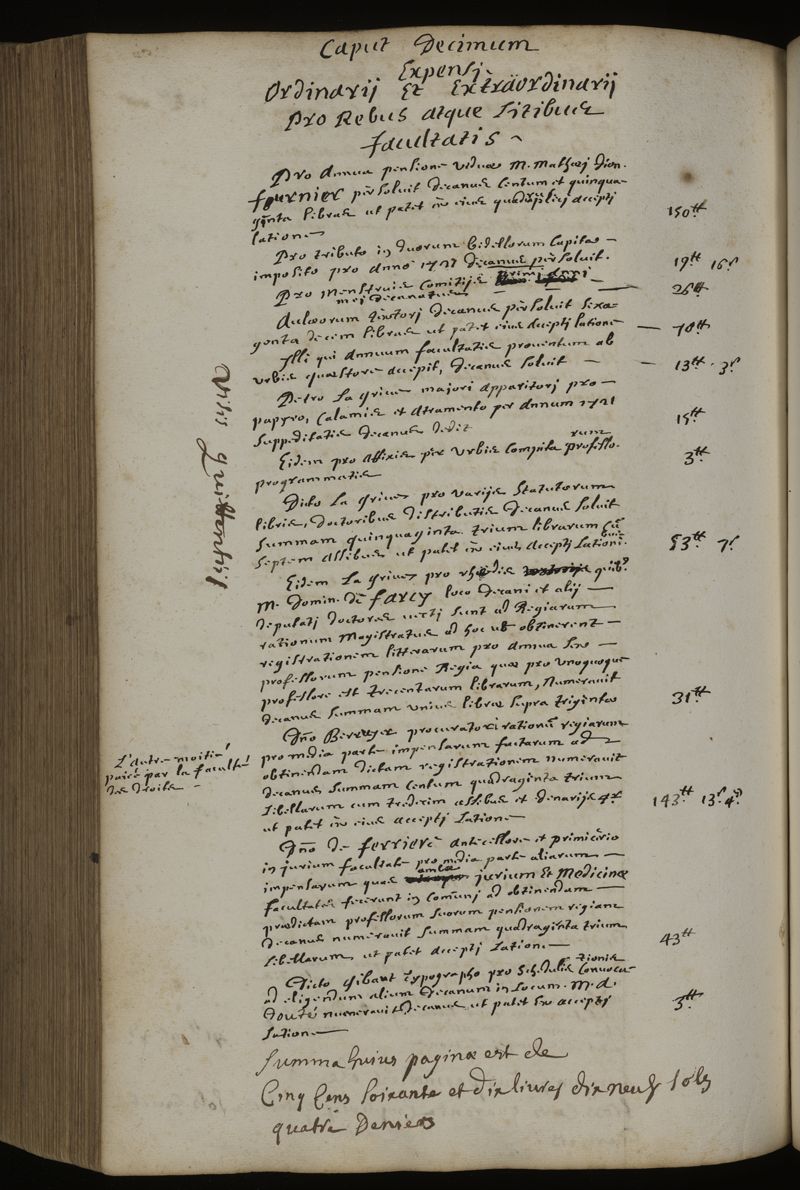 Caput Decimum
Expensi
Ordinarij Et Extraordinarij
Pro Rebus atque Litibus
facultatis
Pro Annua pensione viduæ M. Mathæi Dion.
fournier persoluit Decanus Centum et quinqua-
ginta libras ut patet ex eius quadriplici accepti
latione 150tt
Pro tributo in duorum bidellorum Capita
imposito pro anno 1721 decanus persoluit. 19tt 16s
Pro Menstruis Comitijs primi
mei decanatus 26tt
Aulæorum Decanus persoluit sexa-
genta decem libras ut patet eius accepti latione 70tt
Illi qui annuum facultatis prouentum ab
urbis quæstore accepit, decanus soluit 13tt 3s
Petro La grive majori apparitori pro
papyro, Calamis et atramento per annum 1721
suppeditatis decanus dedit 15tt
Eidem pro affixis per urbis Compita professo-
rum
programmatis 3tt
Dicto La grive pro varijs statutorum
libris, doctoribus distributis Decanus soluit
summam quinquaginta trium librarum cū
septem assibus ut patet ex eius accepti latioñibus 53tt 7s
Eidem La grive pro rhedis quib9
M. Domin. De farcy loco decani et alij
deputati doctores uecti sunt ad Regiarum
rationum Magistratus ad hoc ut obtinerent
registrationem litterarum pro annua sex
professorum pensione Regia quæ pro unoquoque
professore est trecentarum librarum, numerauit
decanus summam unius libræ supra triginta 31tt
Dño Berruyer procuratori rationū regiarum
L'autre moitié
paiée par la faculté
des droits
pro media parte impensarum factarum ad
obtinendam dictam registrationem numerauit
decanus summam Centum quadraginta trium
libellarum cum tredecim assibus et denarijs 4r
ut patet ex eius accepti latione 143tt 13s 4d
Dño de ferriere antecessore et primicerio
in jurium facultate pro media parte aliarum
impensarum quas ambæ jurium Et Medicinæ
facultates fecerunt in Comūni ad obtinendam
prædictam professorum suorum pensionem regiam
decanus numerauit summam quadraginta trium
libellarum, ut patet accepti latione 43tt
Dicto gibaut typographo pro schedulis Convoca-
tionis
ad eligendum alium decanum in locum M. d.
Douté numerauit decanus ut patet ex accepti
latione 3tt
Summa huius paginæ est de
Cinq Cens soixante et dix livres dix neuf sols
quatre Deniers